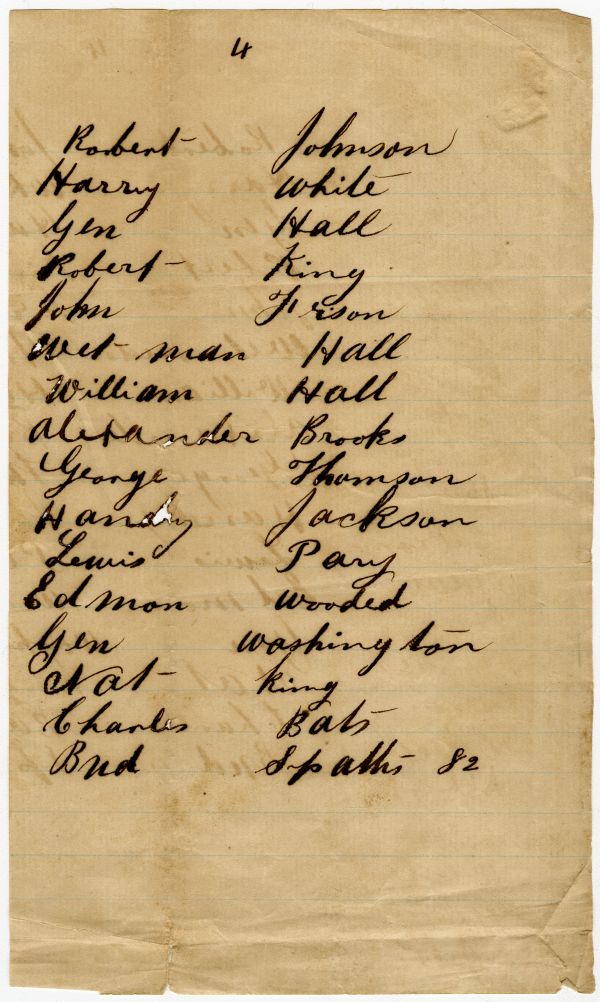 4
Robert Johnson
Harry White
Gen Hall
Robert King
John Ferson
Wet man Hall
William Hall
Alexander Brooks
George Thomson
Handy Jackson
Lewis Pary
Edmon Wooded
Gen Washington
Nat King
Charles Bats
Bud Spaths 82